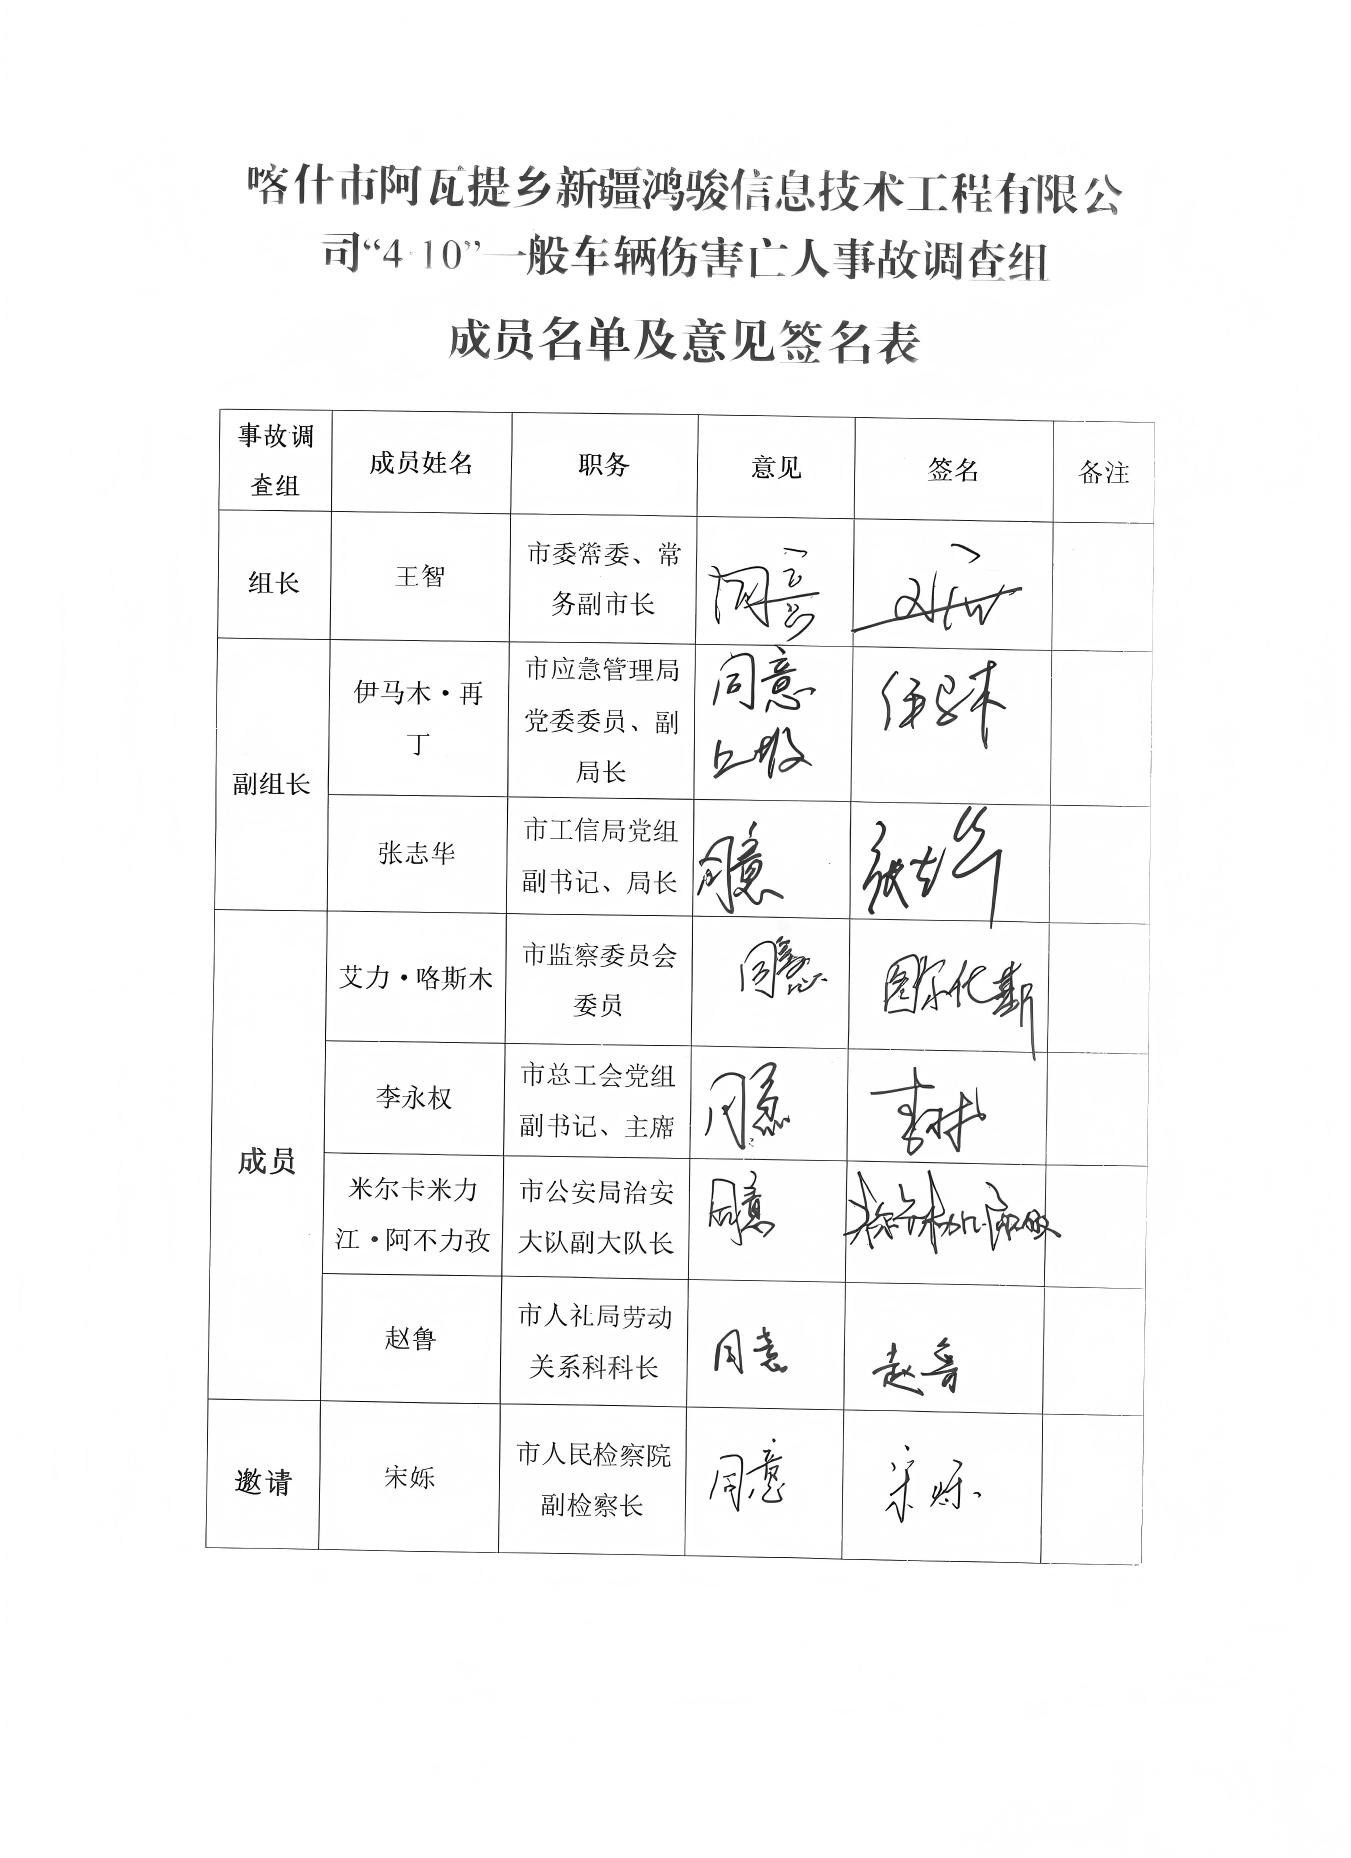 喀什市阿瓦提乡新疆鸿骏信息技术工程有限公
司“4·10”一般车辆伤害亡人事故调查组
成员名单及意见签名表
事故调
查组
成员姓名
职务
意见
签名
备注
组长
王智
市委常委、常
务副市长
同意
副组长
伊马木·再
丁
市应急管理局
党委委员、副
局长
同意
上报
伊马木
张志华
市工信局党组
副书记、局长
同意
张志华
成员
艾力·咯斯木
市监察委员会
委员
同意
李永权
市总工会党组
副书记、主席
同意
李永权
米尔卡米力
江·阿不力孜
市公安局治安
大队副大队长
同意
赵鲁
市人社局劳动
关系科科长
同意
赵鲁
邀请
宋烁
市人民检察院
副检察长
同意
宋烁